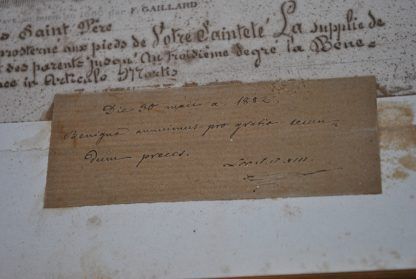 F. GAILLARD
Saint Père
prosterne aux pieds de Votre Sainteté La Supplie de
des parents jusqu'au troisième degré la Béné-
in Articulo Mortis
Die 30 maii a 1882.
Benigne annuimus pro gratia secun-
dum preces.